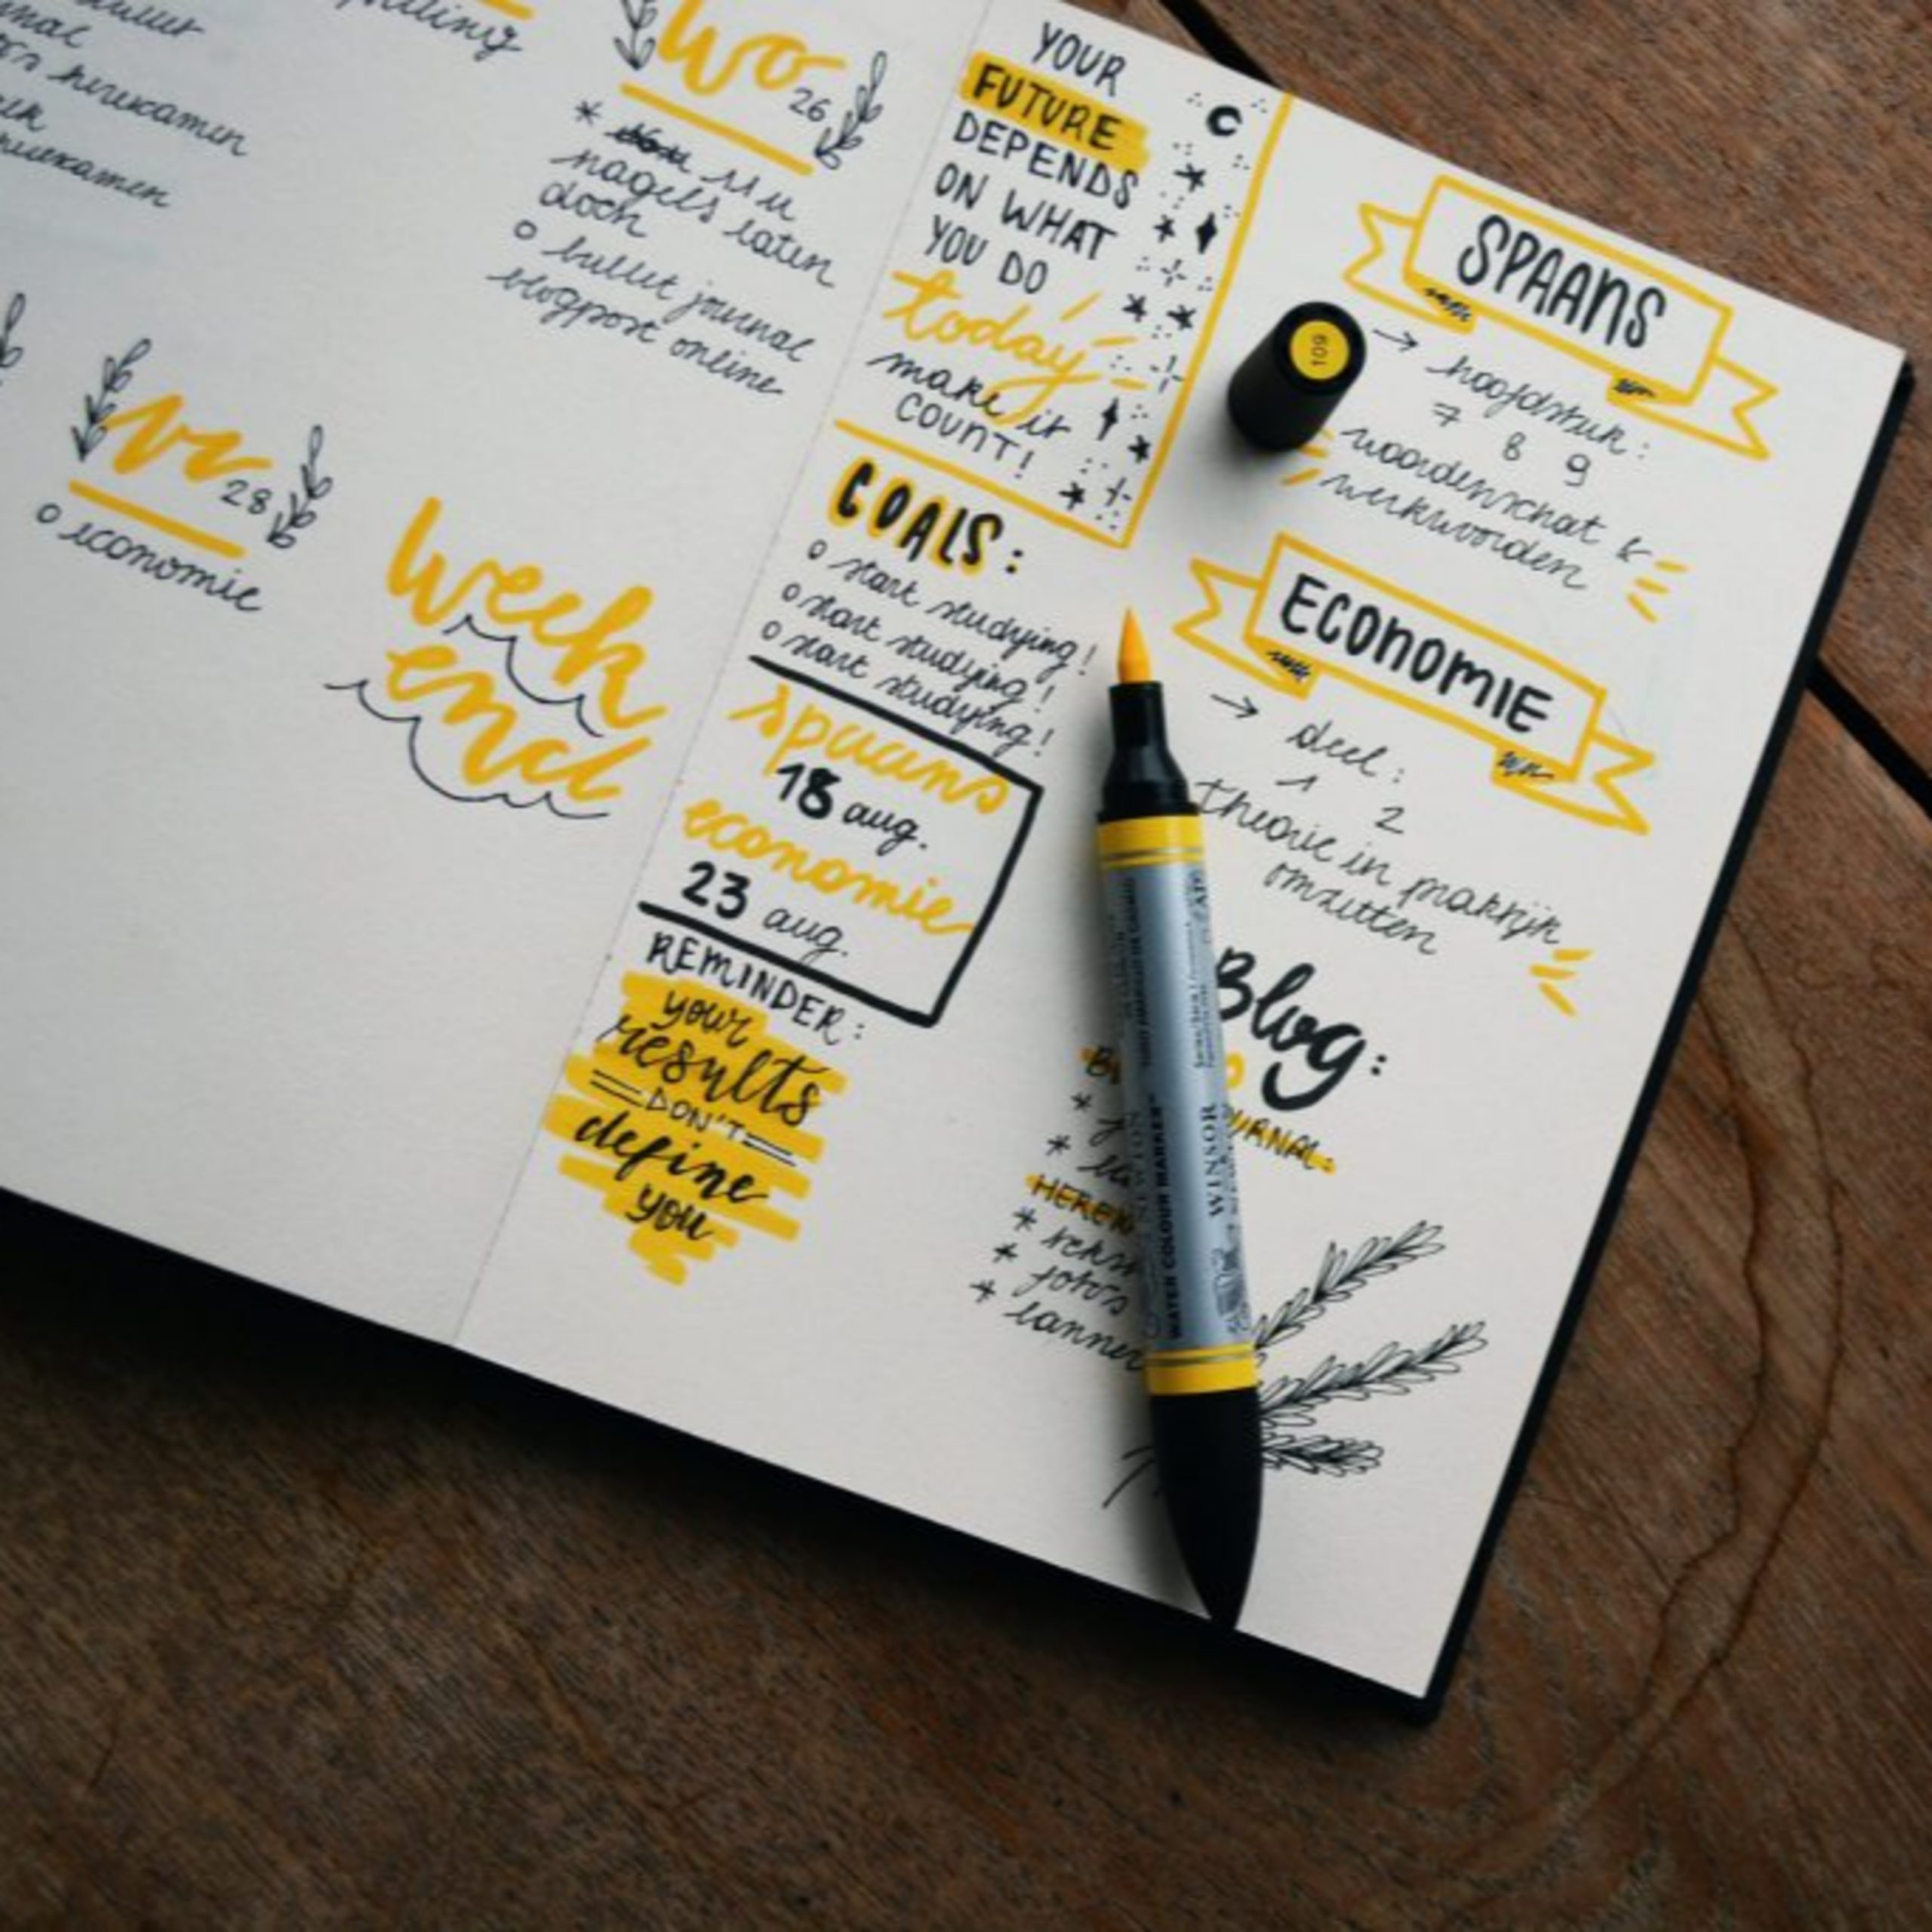 herexamen
herexamen
wo
26
* 11 u
nagels laten
doen
o bullet journal
blogpost online
vr
28
o economie
week
end
YOUR
FUTURE
DEPENDS
ON WHAT
YOU DO
today
make it
COUNT!
GOALS:
o start studying!
o start studying!
o start studying!
spaans
18 aug.
economie
23 aug.
REMINDER:
your
results
DON'T
define
you
SPAANS
→ hoofdstuk:
7 8 9
woordenschat &
werkwoorden
ECONOMIE
→ deel:
1 2
theorie in praktijk
omzetten
Blog:
109
WATER COLOUR MARKER
WINSOR
NEWTON